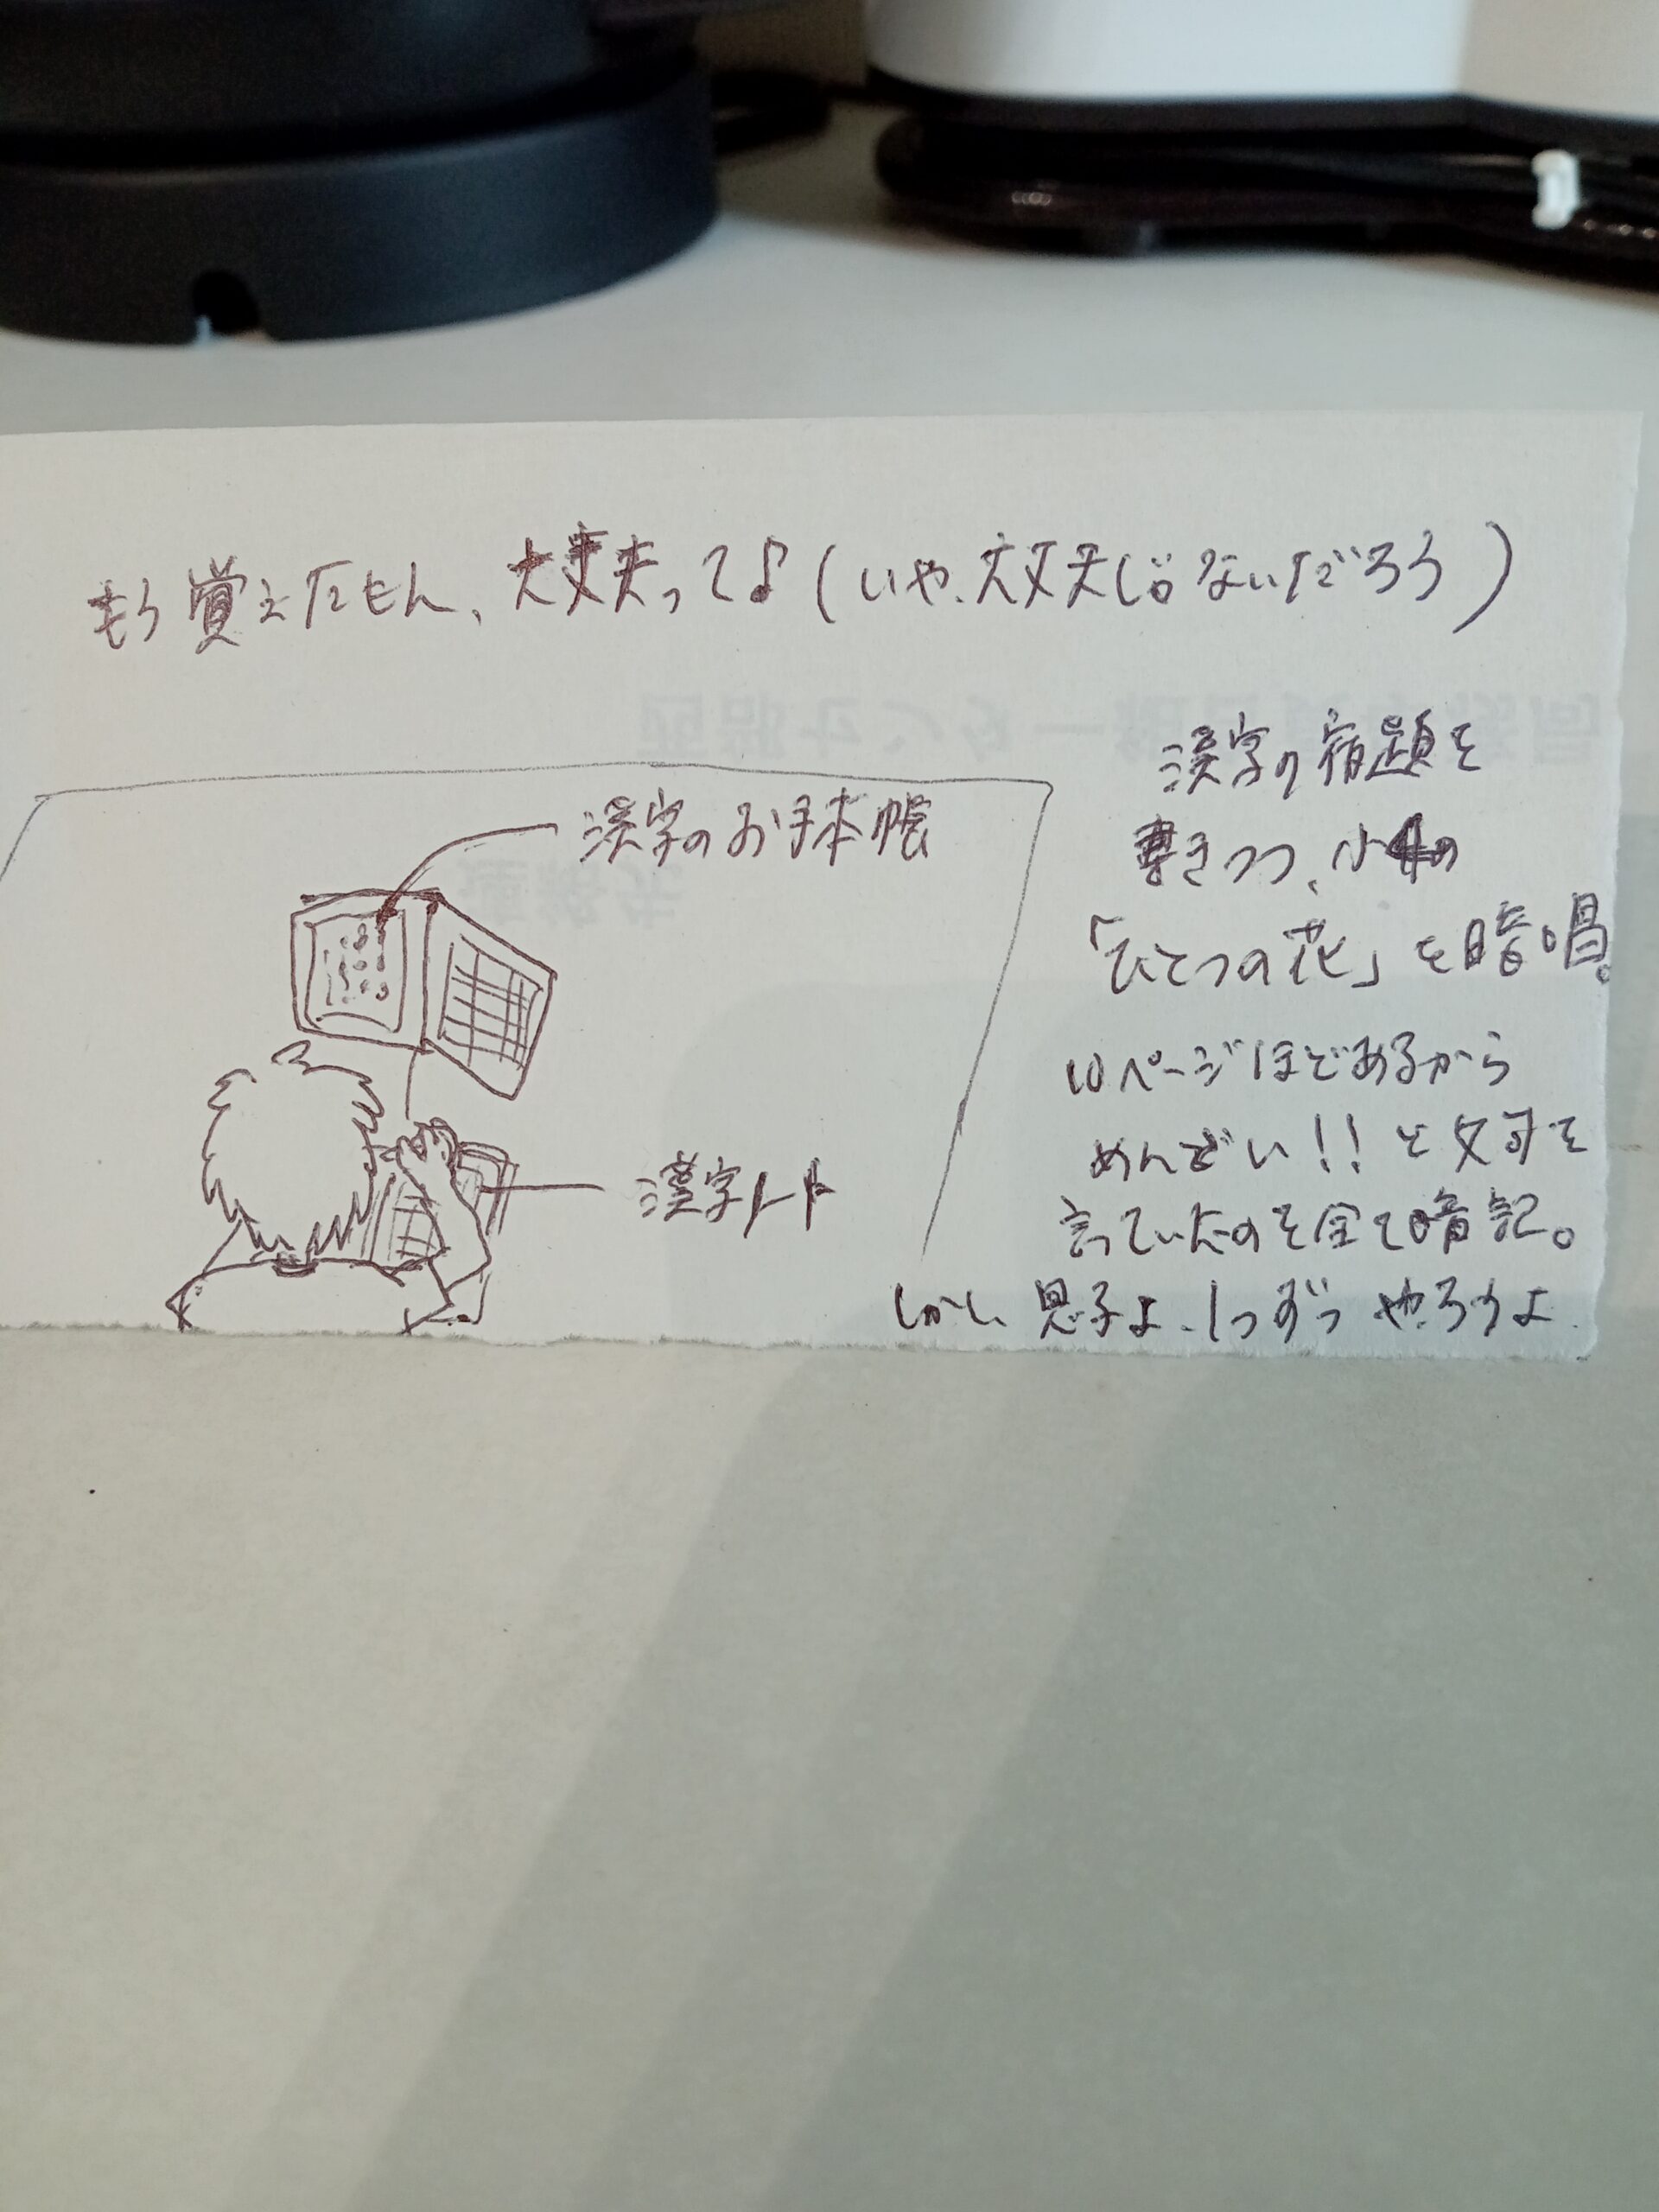 もう覚えたもん、大丈夫って♪(いや、大丈夫じゃないだろう)
漢字のお手本帳
漢字ノート
漢字の宿題を
書きつつ、小4の
「ひとつの花」を暗唱。
10ページほどあるから
めんどい!!と文句を
言っていたのを全て暗記。
しかし、息子よ、1つずつやろうよ